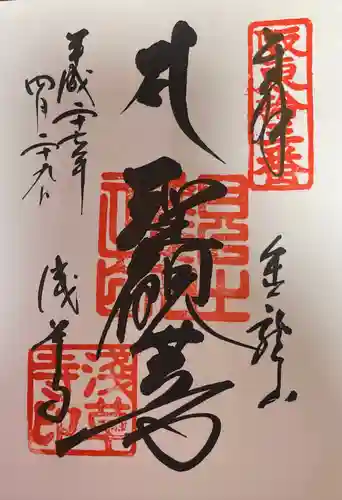 奉拝
坂東拾三番
金龍山
聖観世音
浅草寺
平成二十七年
四月二十九日
浅草寺印